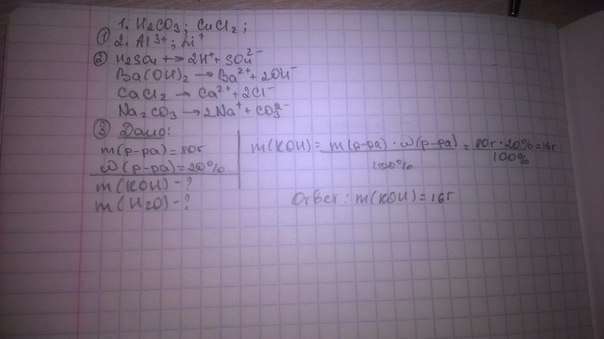 1. H2CO3; CuCl2;
① 2. Al³⁺; Li⁺
② H2SO4 ↔ 2H⁺ + SO4²⁻
Ba(OH)2 → Ba²⁺ + 2OH⁻
CaCl2 → Ca²⁺ + 2Cl⁻
Na2CO3 → 2Na⁺ + CO3²⁻
③ Дано:
m(р-ра) = 80г
ω(р-ра) = 20%
m(KOH) - ?
m(H2O) - ?
m(KOH) = m(р-ра) · ω(р-ра) / 100% = 80г · 20% / 100% = 16г
Ответ: m(KOH) = 16г